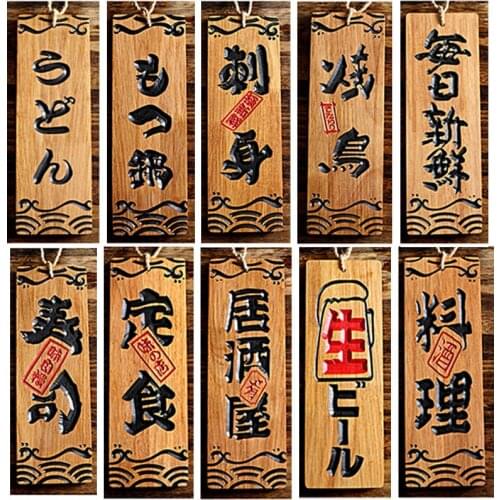 うどん
もつ鍋
刺身
焼鳥
毎日新鮮
寿司
定食
居酒屋
生ビール
料理
酒